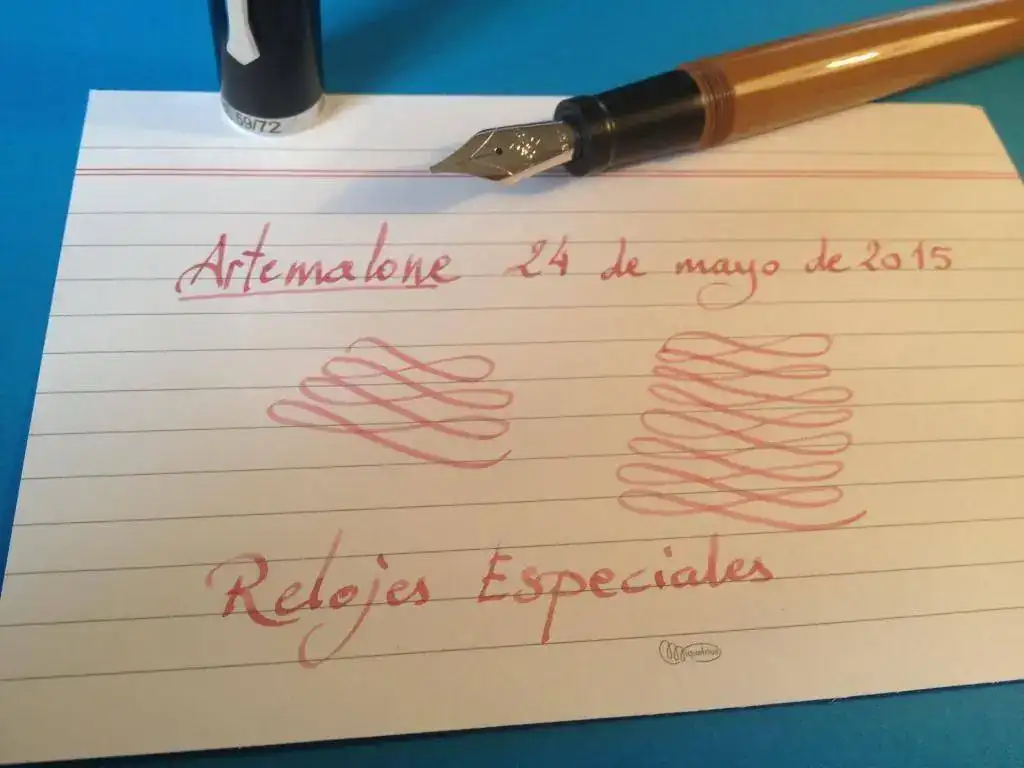 69/72
Artemalone 24 de mayo de 2015
Relojes Especiales